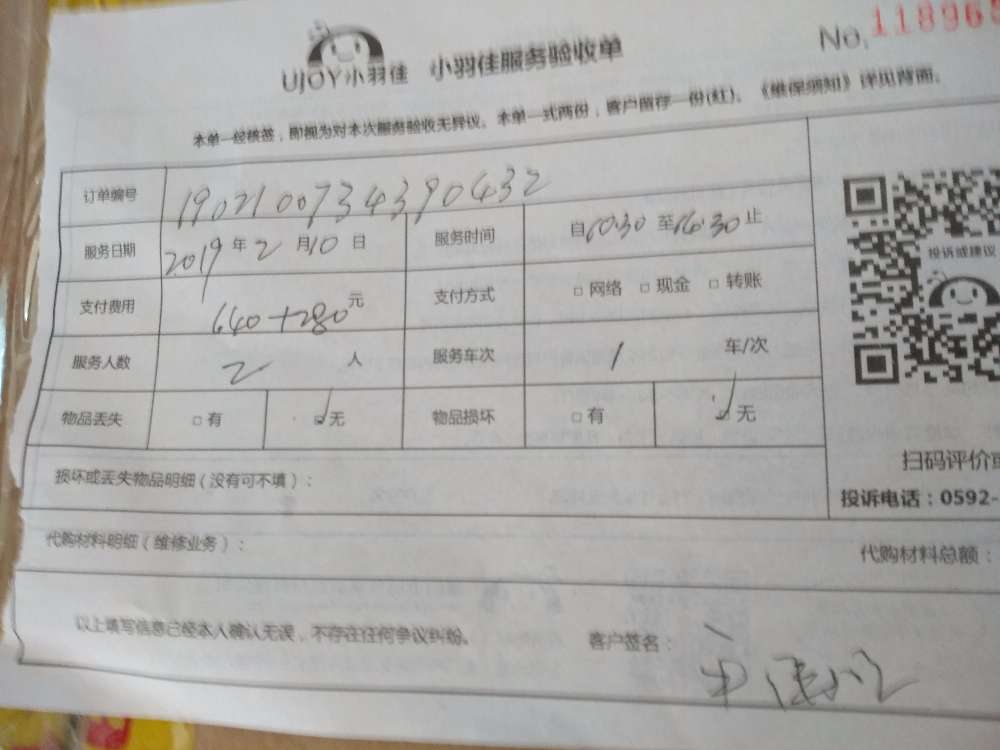 UJOY小羽佳 小羽佳服务验收单 No.118965
本单一经核签，即视为对本次服务验收无异议。本单一式两份，客户留存一份(红)。《维保须知》详见背面。
订单编号 1902100734390432
服务日期 2019年2月10日 服务时间 自10:30至16:30止
支付费用 640+280元 支付方式 □网络 □现金 □转账
服务人数 2人 服务车次 1 车/次
物品丢失 □有 ☑无 物品损坏 □有 ☑无
投诉或建议
损坏或丢失物品明细（没有可不填）：
扫码评价或
投诉电话：0592-
代购材料明细（维修业务）：
代购材料总额：
以上填写信息已经本人确认无误，不存在任何争议纠纷。 客户签名：